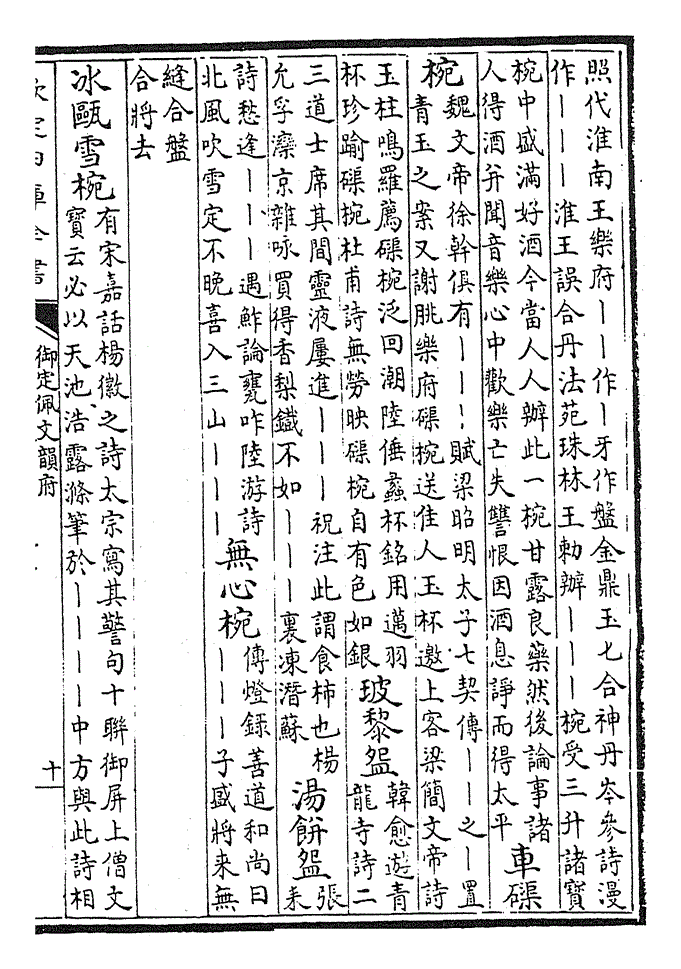 照代淮南王樂府丨丨作丨牙作盤金鼎玉匕合神丹岑參詩漫
作丨丨丨淮王誤合丹法苑珠林王勅辦丨丨丨椀受三升諸寶
椀中盛滿好酒今當人人辦此一椀甘露良藥然後論事諸
人得酒并聞音樂心中歡樂亡失讐恨因酒息諍而得太平
車磲
椀
魏文帝徐幹俱有丨丨丨賦梁昭明太子七契傳丨丨之丨置
青玉之案又謝朓樂府磲椀送佳人玉杯邀上客梁簡文帝詩
玉柱鳴羅薦磲椀泛回潮陸倕蠡杯銘用邁羽
杯珍踰磲椀杜甫詩無勞映磲椀自有色如銀
玻黎盌
韓愈遊青
龍寺詩二
三道士席其間靈液屢進丨丨丨祝注此謂食柿也楊
允孚灤京雜咏買得香梨鐵不如丨丨丨裏凍潛蘇
湯餅盌
張
耒
詩愁逢丨丨丨遇鮓論甕咋陸游詩
北風吹雪定不晚喜入三山丨丨丨
無心椀
傳燈録善道和尚曰
丨丨丨子盛將来無
縫合盤
合將去
冰甌雪椀
有宋嘉話楊徽之詩太宗寫其警句十聯御屏上僧文
寶云必以天池浩露滌筆於丨丨丨丨中方與此詩相
欽定四庫全書
御定佩文韻府
十